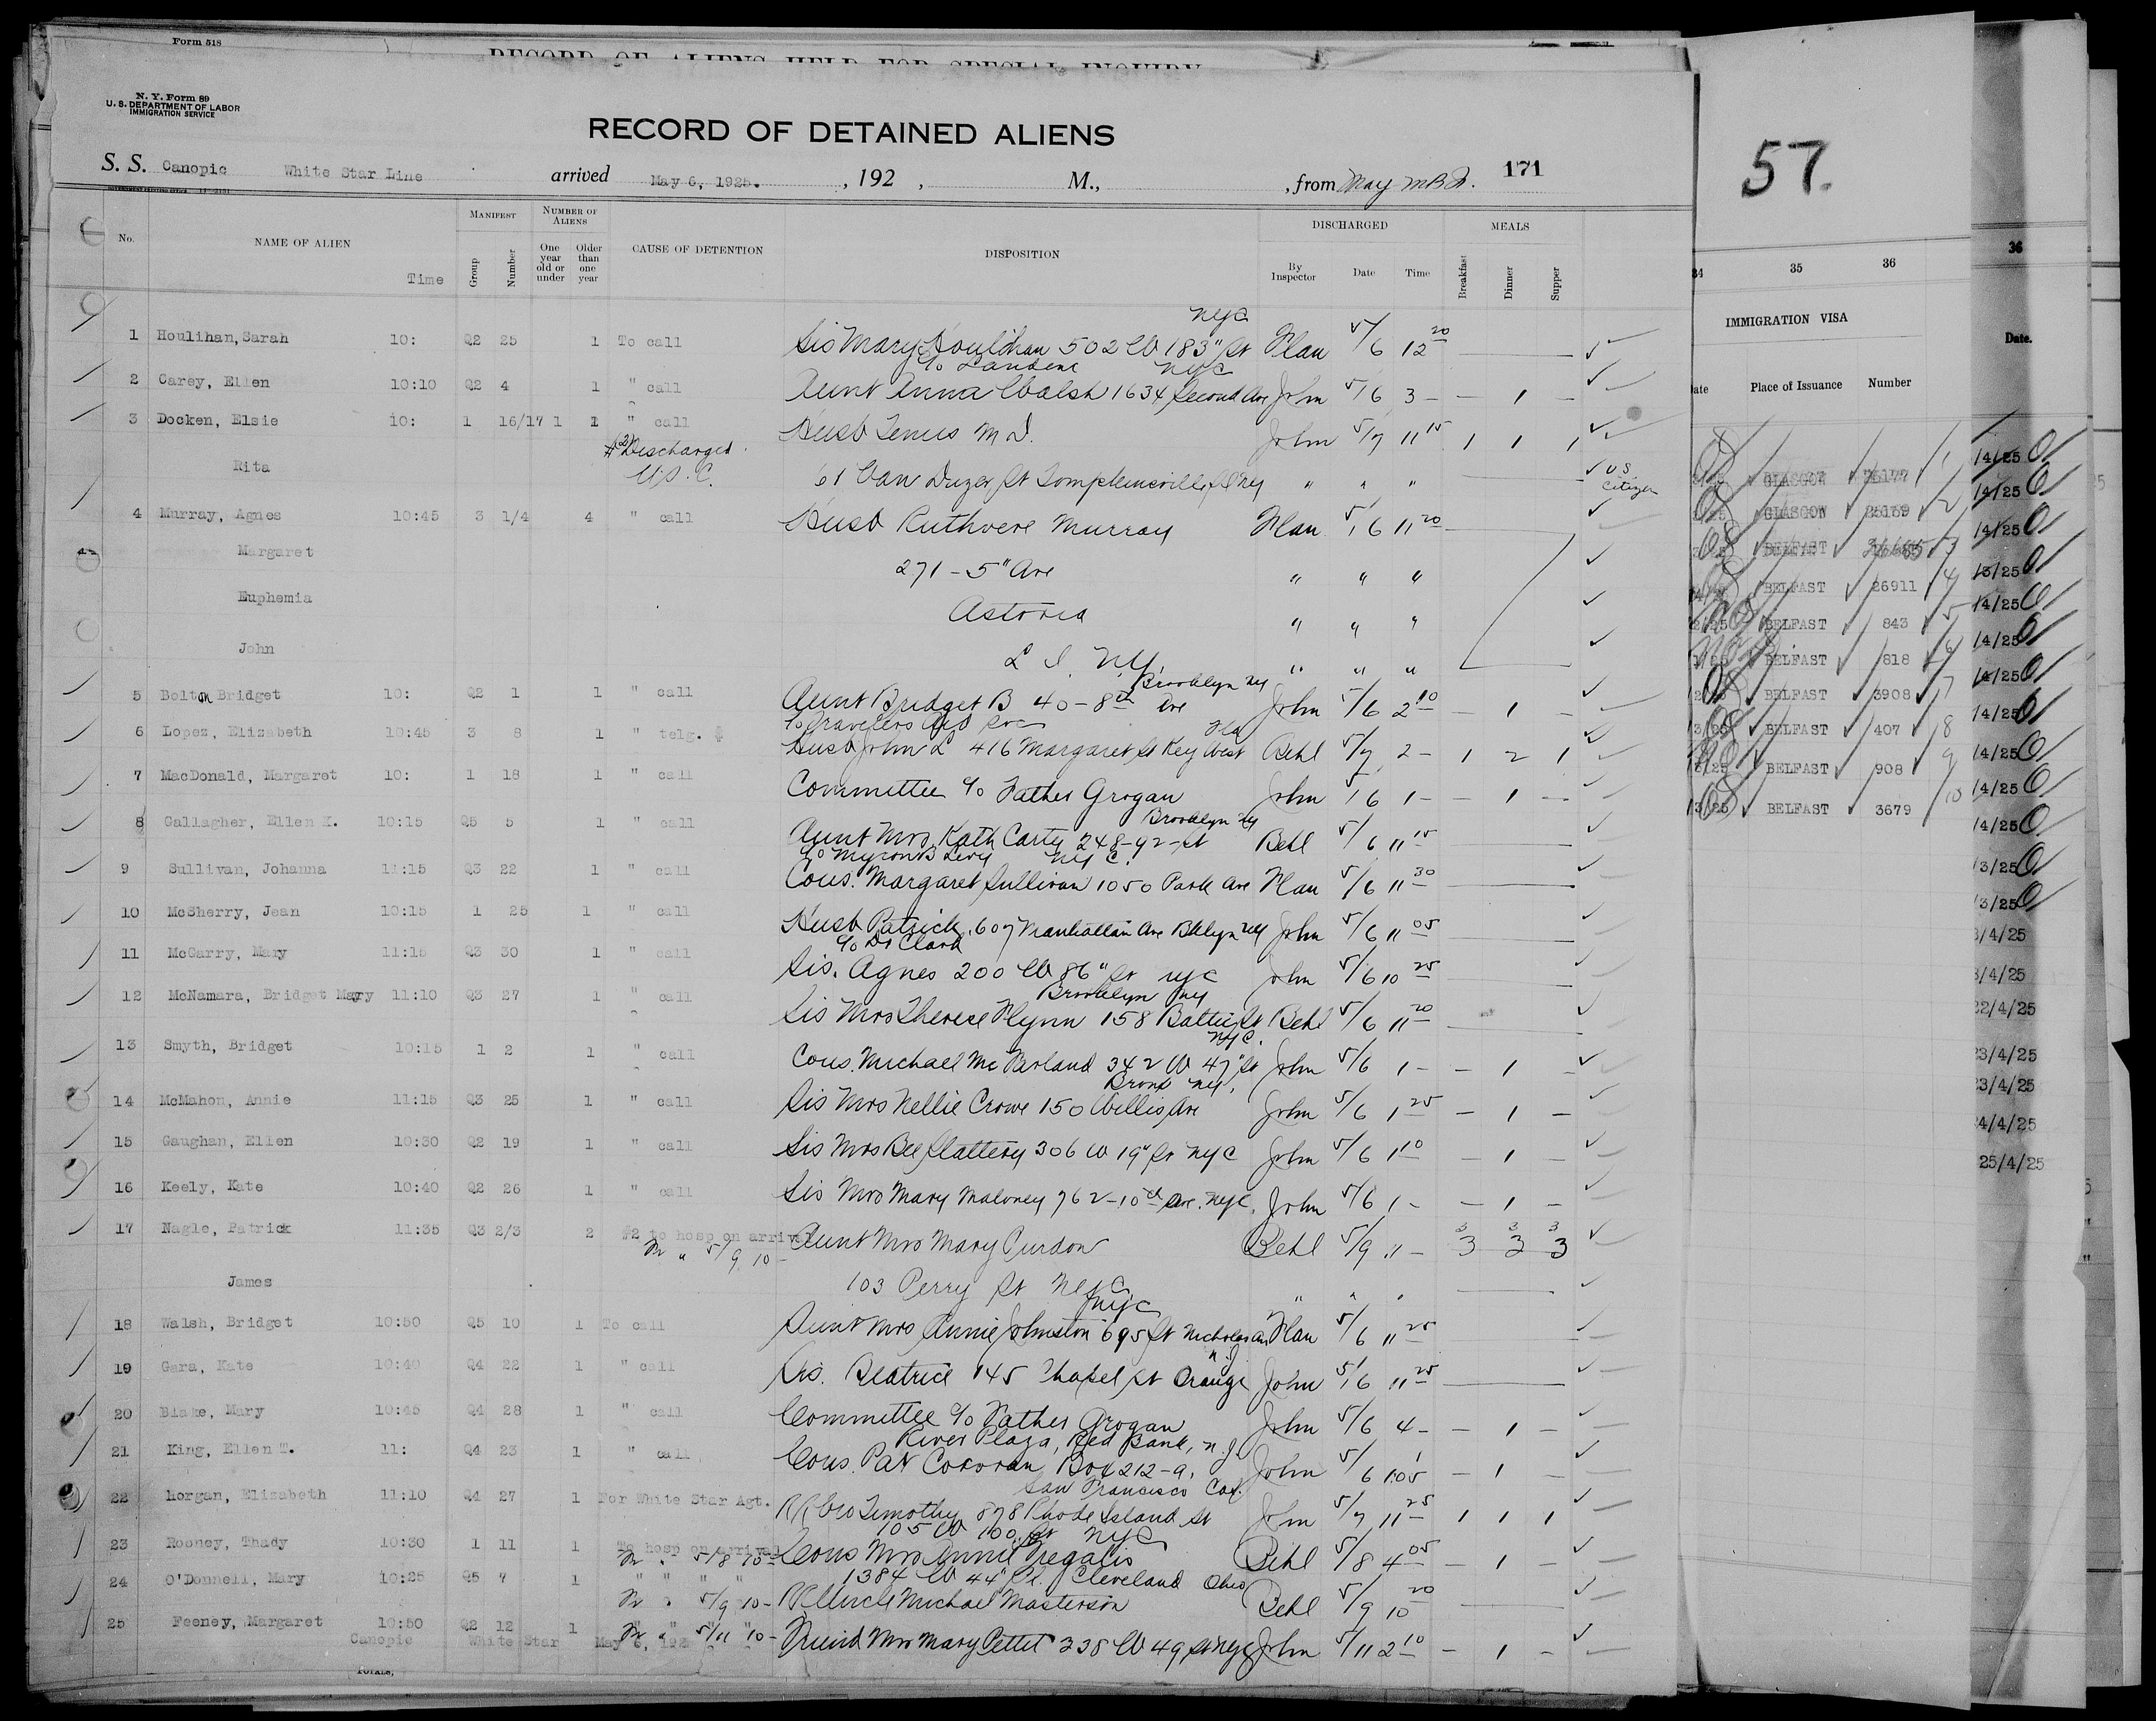 Form 518
RECORD OF ALIENS HELD FOR SPECIAL INQUIRY
N. Y. Form 89
U. S. DEPARTMENT OF LABOR
IMMIGRATION SERVICE
RECORD OF DETAINED ALIENS
S. S. Canopic White Star Line arrived May 6, 1925. , 192 , M., , from 171
57.
No. NAME OF ALIEN Time MANIFEST Group Number NUMBER OF ALIENS One year old or under Older than one year CAUSE OF DETENTION DISPOSITION DISCHARGED By Inspector Date Time MEALS Breakfast Dinner Supper
NYC
1 Houlihan, Sarah 10: Q2 25 1 To call Sis Mary Houlihan 502 W 183" St 5/6 12 20
NYC
2 Carey, Ellen 10:10 Q2 4 1 " call Aunt Anna Walsh 1634 Second Ave John 5/6 3 — — 1 —
3 Docken, Elsie 10: 1 16/17 1 1 " call Husb John 5/7 11 15 1 1 1
#(2) Discharged
Rita U.S.C. 61 Van Duzer St Tompkinsville " " " US Citizen
4 Murray, Agnes 10:45 3 1/4 4 " call Husb Ruthvere Murray 5/6 11 20
Margaret 271 - 5" Ave " " "
Euphemia Astoria " " "
John L I. NY. " " "
Brooklyn NY
5 Bolton Bridget 10: Q2 1 1 " call Aunt Bridget B 40 - 8th Ave John 5/6 2 10 — 1 —
c/o Travelers Aid Soc Fla
6 Lopez, Elizabeth 10:45 3 8 1 " telg. $ Husb John L 416 Margaret St Key West Behl 5/7 2 — 1 2 1
7 MacDonald, Margaret 10: 1 18 1 " call Committee c/o Father Grogan John 5/6 1 — — 1 —
Brooklyn NY
8 Gallagher, Ellen K. 10:15 Q5 5 1 " call Aunt Mrs Kath Carty 248-92-St Behl 5/6 11 15
c/o Myron B Levy NYC.
9 Sullivan, Johanna 11:15 Q3 22 1 " call Cous. Margaret Sullivan 1050 Park Ave 5/6 11 30
10 McSherry, Jean 10:15 1 25 1 " call Husb Patrick, 607 Manhattan Ave Bklyn NY John 5/6 11 05
c/o Dr Clark
11 McGarry, Mary 11:15 Q3 30 1 " call Sis. Agnes 200 W 86" St NYC John 5/6 10 25
Brooklyn NY
12 McNamara, Bridget Mary 11:10 Q3 27 1 " call Sis Mrs Therese Flynn 158 St Behl 5/6 11 20
NYC.
13 Smyth, Bridget 10:15 1 2 1 " call Cous. Michael McParland 342 W 47" St John 5/6 1 — — 1 —
Bronx NY,
14 McMahon, Annie 11:15 Q3 25 1 " call Sis Mrs Nellie Crowe 150 Willis Ave John 5/6 1 25 — 1 —
15 Gaughan, Ellen 10:30 Q2 19 1 " call Sis Mrs Bee Slattery 306 W 19" St NYC John 5/6 1 10 — 1 —
16 Keely, Kate 10:40 Q2 26 1 " call Sis Mrs Mary Maloney 762-10th Ave. NYC. John 5/6 1 — — 1 —
17 Nagle, Patrick 11:35 Q3 2/3 2 #2 to hosp on arrival Aunt Mrs Mary Purdon Behl 5/9 11 — 3 3 3
" 5/9 10 —
James 103 Perry St NYC " " "
NYC
18 Walsh, Bridget 10:50 Q5 10 1 To call Aunt Mrs Annie Johnston 695 St Nicholas Av 5/6 11 25
N.J.
19 Gara, Kate 10:40 Q4 22 1 " call Sis. Beatrice 145 Chapel St Orange John 5/6 11 25
20 Blake, Mary 10:45 Q4 28 1 " call Committee c/o Father Grogan John 5/6 4 — — 1 —
River Plaza, Red Bank, N.J.
21 King, Ellen T. 11: Q4 23 1 " call Cous. Pat Corcoran Box 212-a, John 5/6 1 05 — 1 —
San Francisco Cal.
22 Horgan, Elizabeth 11:10 Q4 27 1 For White Star Agt. RR Bro Timothy 878 Rhode Island St John 5/7 11 25 1 1 1
105 W 100 St NYC
23 Rooney, Thady 10:30 1 11 1 To hosp on arrival Cous Mrs Annie Regalis Behl 5/8 4 05 — 1 —
" 5/8 10 —
1384 W 44" Pl. Cleveland Ohio
24 O'Donnell, Mary 10:25 Q5 7 1 " " " " RR Uncle Michael Masterson Behl 5/9 10 20
" 5/9 10 —
25 Feeney, Margaret 10:50 Q2 12 1 " " " " Friend Mrs Mary Pettit 338 W 49 St NYC John 5/11 2 10 — 1 —
" 5/11 10 —
Canopic White Star May 6, 192
TOTALS,
34 35 36
IMMIGRATION VISA
ate Place of Issuance Number
GLASGOW 1
GLASGOW 25159 2
BELFAST 3
BELFAST 26911 4
BELFAST 843 5
BELFAST 818 6
BELFAST 3908 7
BELFAST 407 8
BELFAST 908 9
BELFAST 3679 10
36
Date.
/4/25
/4/25
/4/25
/3/25
/4/25
/4/25
/4/25
/4/25
/4/25
/4/25
/4/25
/3/25
/3/25
3/4/25
3/4/25
22/4/25
23/4/25
23/4/25
24/4/25
25/4/25